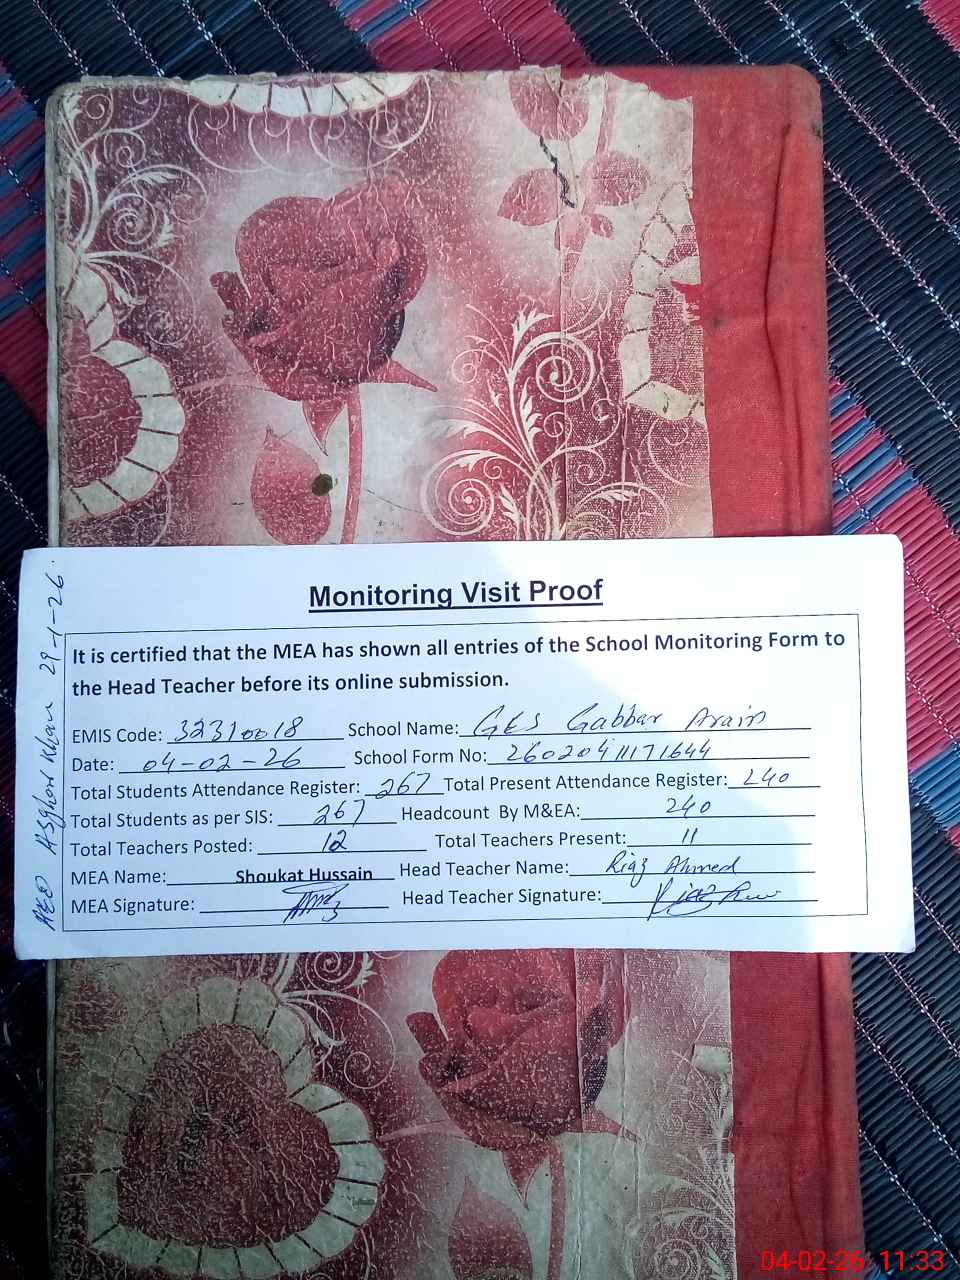 Monitoring Visit Proof
It is certified that the MEA has shown all entries of the School Monitoring Form to
the Head Teacher before its online submission.
EMIS Code: 32310018 School Name: GES Gabbar Arain
Date: 04-02-26 School Form No: 26020411171644
Total Students Attendance Register: 267 Total Present Attendance Register: 240
Total Students as per SIS: 267 Headcount By M&EA: 240
Total Teachers Posted: 12 Total Teachers Present: 11
MEA Name: Shoukat Hussain Head Teacher Name: Riaz Ahmed
MEA Signature: Head Teacher Signature:
AEO Asghar Khan 29-1-26.
04-02-26 11:33